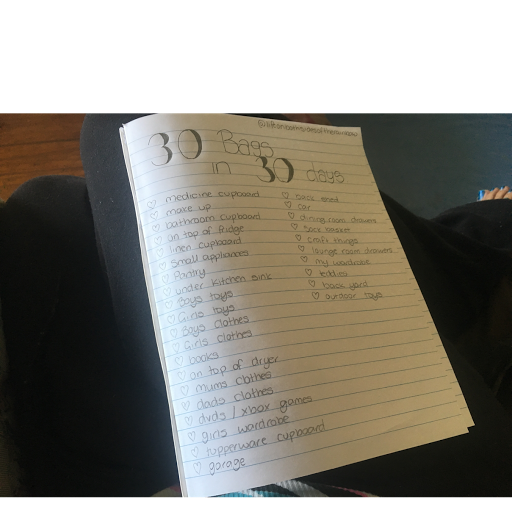 30 Bags
in 30 days
♡ medicine cupboard
♡ make up
♡ bathroom cupboard
♡ on top of fridge
♡ linen cupboard
♡ small appliances
♡ Pantry
♡ under kitchen sink
♡ Boys toys
♡ Girls toys
♡ Boys clothes
♡ Girls clothes
♡ books
♡ on top of dryer
♡ mums clothes
♡ dads clothes
♡ dvds / xbox games
♡ girls wardrobe
♡ tupperware cupboard
♡ garage
♡ back shed
♡ car
♡ dining room drawers
♡ sock basket
♡ craft things
♡ lounge room drawers
♡ my wardrobe
♡ bedding
♡ back yard
♡ outdoor toys